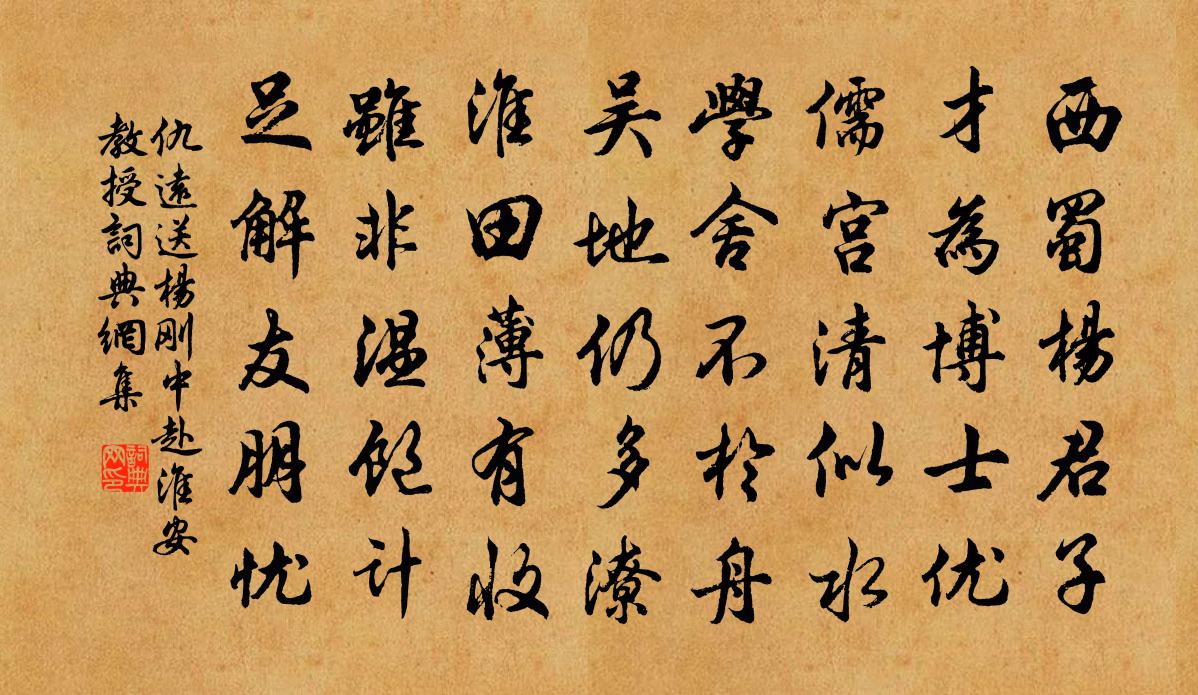 西蜀楊君子
才為博士优
儒宫清似水
學舍不於舟
吴地仍多潦
淮田薄有收
雖非温飽计
足解友朋忧
仇遠送楊刚中赴淮安
教授詞典網集
詞典網印